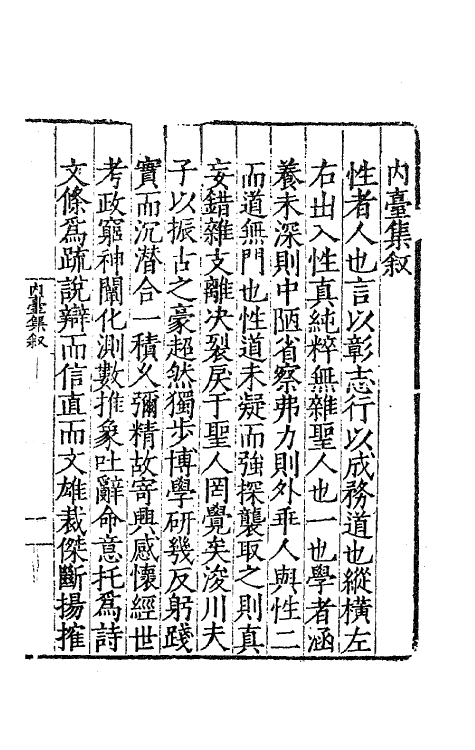 内臺集叙
性者人也言以彰志行以成務道也縱横左
右出入性真純粹無雜聖人也一也學者涵
養未深則中陋省察弗力則外乖人與性二
而道無門也性道未凝而強探襲取之則真
妄錯雜支離决裂戾于聖人罔覺矣浚川夫
子以振古之豪超然獨步博學研幾反躬踐
實而沉潜合一積久彌精故寄興感懷經世
考政窮神闡化測數推象吐辭命意托爲詩
文條爲疏說辯而信直而文雄裁傑斷揚搉
内臺集叙
一